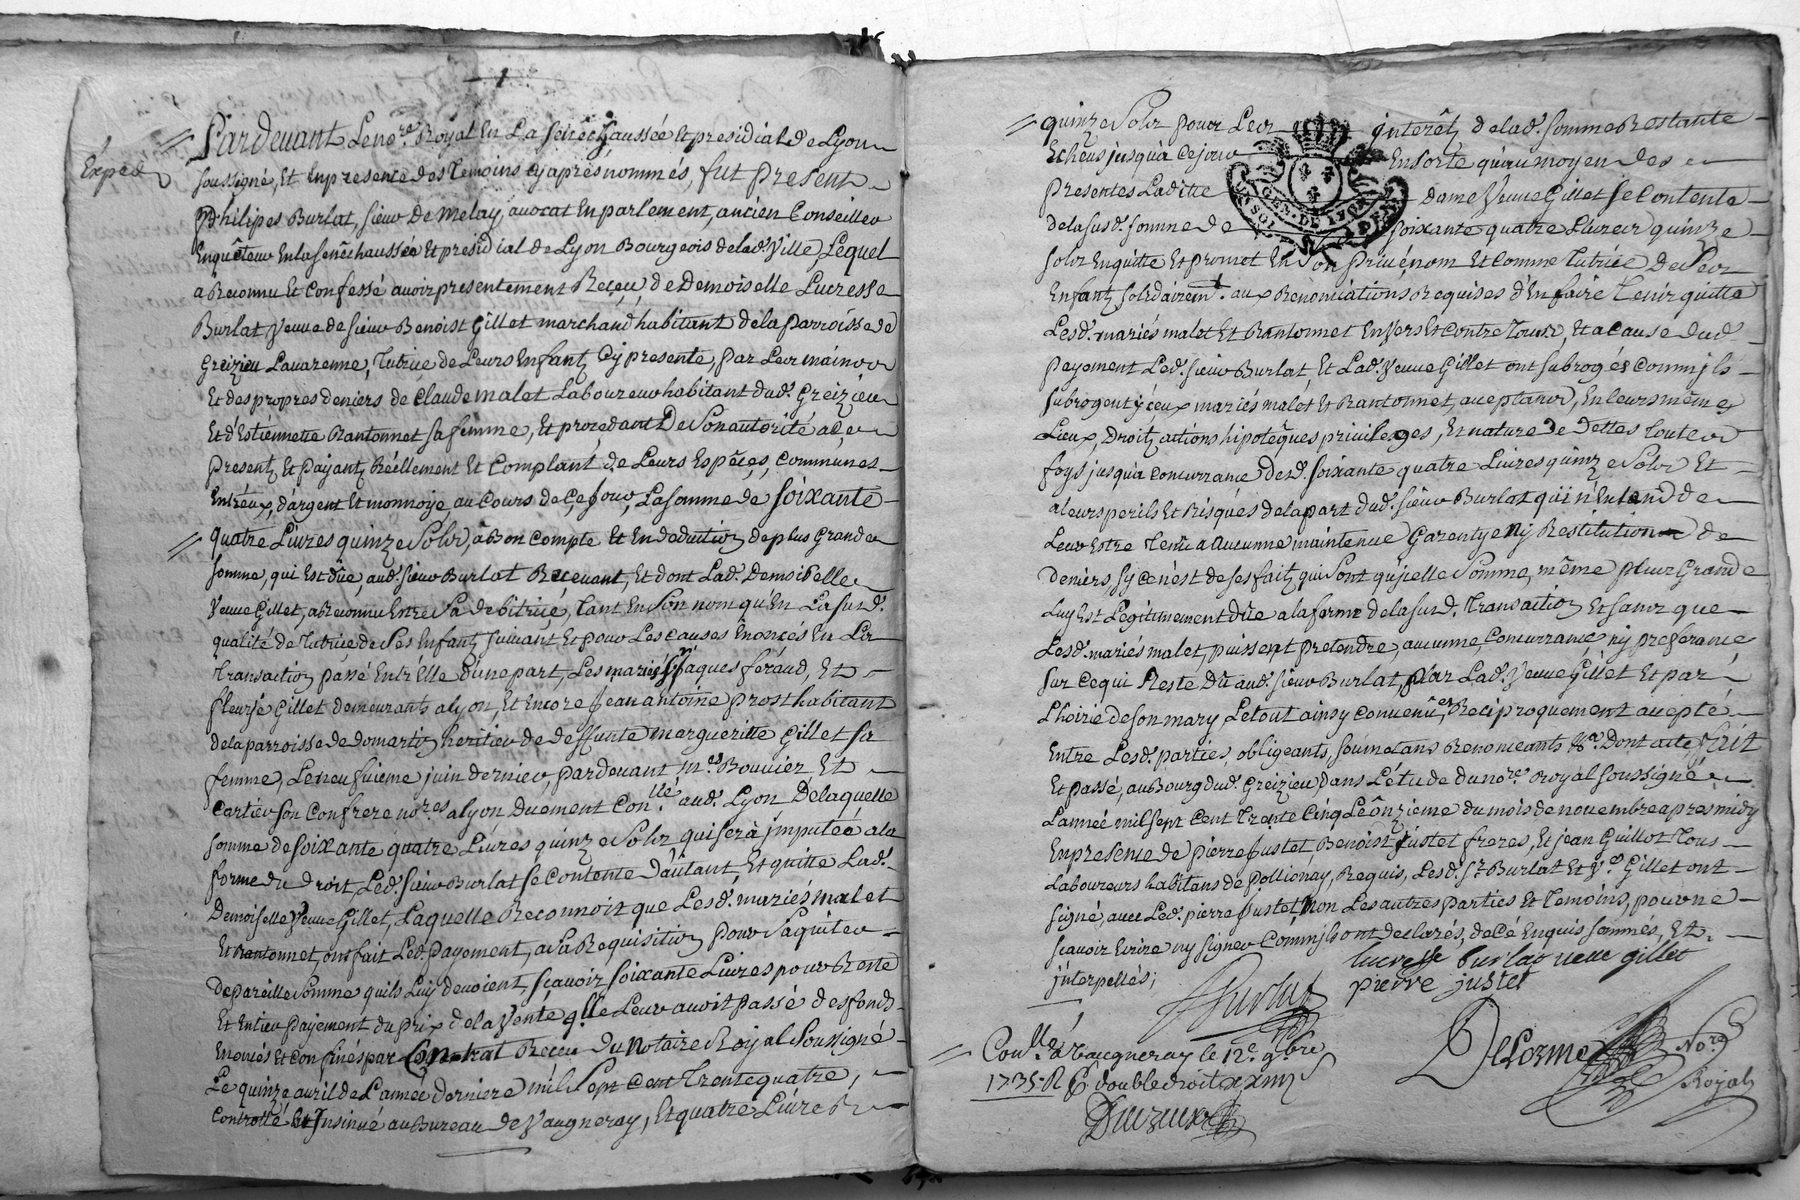 Expedₑ
Pardevant Le no.re Royal En La Senéchaussée Et presidial de Lyon
soussigné, Et En presence des Temoins cy aprés nommés, fut present
philipes Burlat, sieur de melay, avocat En parlement, ancien Conseiller
Enquêteur En la senêchaussée Et presidial de Lyon Bourgeois de lad. Ville, Lequel
a Reconnu Et Confessé avoir presentement Reçeu de Demoiselle Lucresse
Burlat veuve de sieur Benoist Gillet marchand habitant de la parroisse de
Greizieu Lavarenne, Tutrice de Leurs Enfantz cy presente, par Les mains
Et des propres deniers de Claude malet Laboureur habitant dud. Greizieu
Et d'Estiennette Rantonnet sa femme, Et procedant De Son autorité a ce
presentz Et payantz Réellement Et Comptant de Leurs Espêces, communes
Entréux, d'argent Et monnoye au Cours de ce Jour, La somme de soixante
quatre Livres quinze Solz, à Bon Compte Et En deduction de plus Grande
somme, qui Est dûe, aud. sieur Burlat Recevant, Et dont Lad. Demoiselle
Veuve Gillet, a Reconnu Entre Sa debitrice, tant En Son nom qu'En La susd.
qualité de Tutrice de Ses Enfantz suivant Et pour Les causes Enoncés En La
Transaction passé Entr'Elle d'une part, Les mariés Jaques feraud, Et
fleurie Gillet demeurants a Lyon, Et Encore Jean antoine prost habitant
de la parroisse de domartin heritier de deffunte margueritte Gillet sa
femme, Le neufuieme juin dernier, pardevant m.es Bouvier Et
Cartier son Confrere no.res a Lyon Duement Con.lle aud. Lyon De laquelle
somme de soixante quatre Livres quinze Solz qui serà jmputée a la
forme du droit, Led. sieur Burlat se Contente D'autant, Et quitte Lad.
Demoiselle Veuve Gillet, Laquelle Reconnoit que Lesd. mariés malet
Et Rantonnet, ont fait Led. payement, a Sa Requisition pour S'aquiter
De pareille Somme qu'ils Luy devoient, sçavoir soixante Livres pour Reste
Et Entier payement du prix de la Vente q.lle Leur avoit passé des fonds
Enoncés Et Confinés par Contrat Receu Du Notaire Royal Soussigné
Le quinze avril de L'année derniere mil Sept Cent Trente quatre,
Controllé Et Insinué au Bureau de Vaugneray, Et quatre Livres
quinze Solz pour Les jnterêtz de lad. somme Restante
Echeus jusqu'a Ce jour En sorte qu'au moyen des
presentes Ladite dame Veuve Gillet se Contente
GEN. DE LYON
de la susd. somme de soixante quatre Livres quinze
solz En quitte Et promet En Son privé nom Et comme Tutrice De Ses
Enfantz solidairem.t aux Renonciations Requises d'En faire Tenir quitte
Lesd. mariés malet Et Rantonnet Envers Et contre Tous, Et a cause dud.
payement Led. sieur Burlat, Et Lad. Veuve Gillet ont subrogés Comm'jls
subrogent yceux mariés malet Et Rantonnet, acceptants, En leurs mêmes
Lieux, Droitz actions hipotêques privileges, En nature de dettes toutes
foys jusqu'a concurrance Desd. soixante quatre Livres quinze Solz Et
a leurs perils Et Risques de la part dud. sieur Burlat qui n'Entend de
Leur Estre Tenu a aucunne maintenue Garentye ny Restitution de
deniers, sy ce n'est de ses faitz qui Sont qu'jcelle Somme, même plus Grande
Luy Est Legitimement Dûe a la forme de la susd. Transaction Et sans que
Lesd. mariés malet, puissent pretendre, aucunne, Concurrance, ny preferance,
sur Ce qui Reste Dû aud. sieur Burlat, par Lad. Veuve Gillet Et par
L'hoirie de son mary Le tout ainsy Convenû, Et Reciproquement accepté
Entre Lesd. parties, obligeants, soumetans Renonceants &a. Dont acte fait
Et passé, au Bourg dud. Greizieu Dans L'étude du no.re Royal soussigné
L'année mil sept Cent Trente Cinq Le ônzieme du mois de novembre apres midy
En presence de pierre Justet, Benoist Justet freres, Et jean Guillot Tous
Laboureurs habitans de pollionay, Requis, Lesd. s.r Burlat Et V.e Gillet ont
signé, avec Led. pierre Justet, non Les autres parties Et Temoins, pour ne
sçavoir Ecrire ny signer Comm'jls ont declarés, de Cé Enquis sommés, Et
jnterpellés;
lucresse burlat veuve gillet
Burlat pierre justet
Delorme No.re Royal
Con.lle à Vaugneray le 12.e 9.bre
1735. R double droit